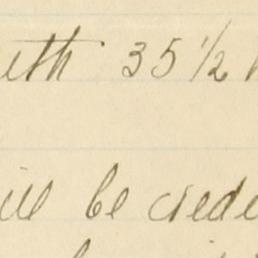 eth 35 1/2
ill be crede